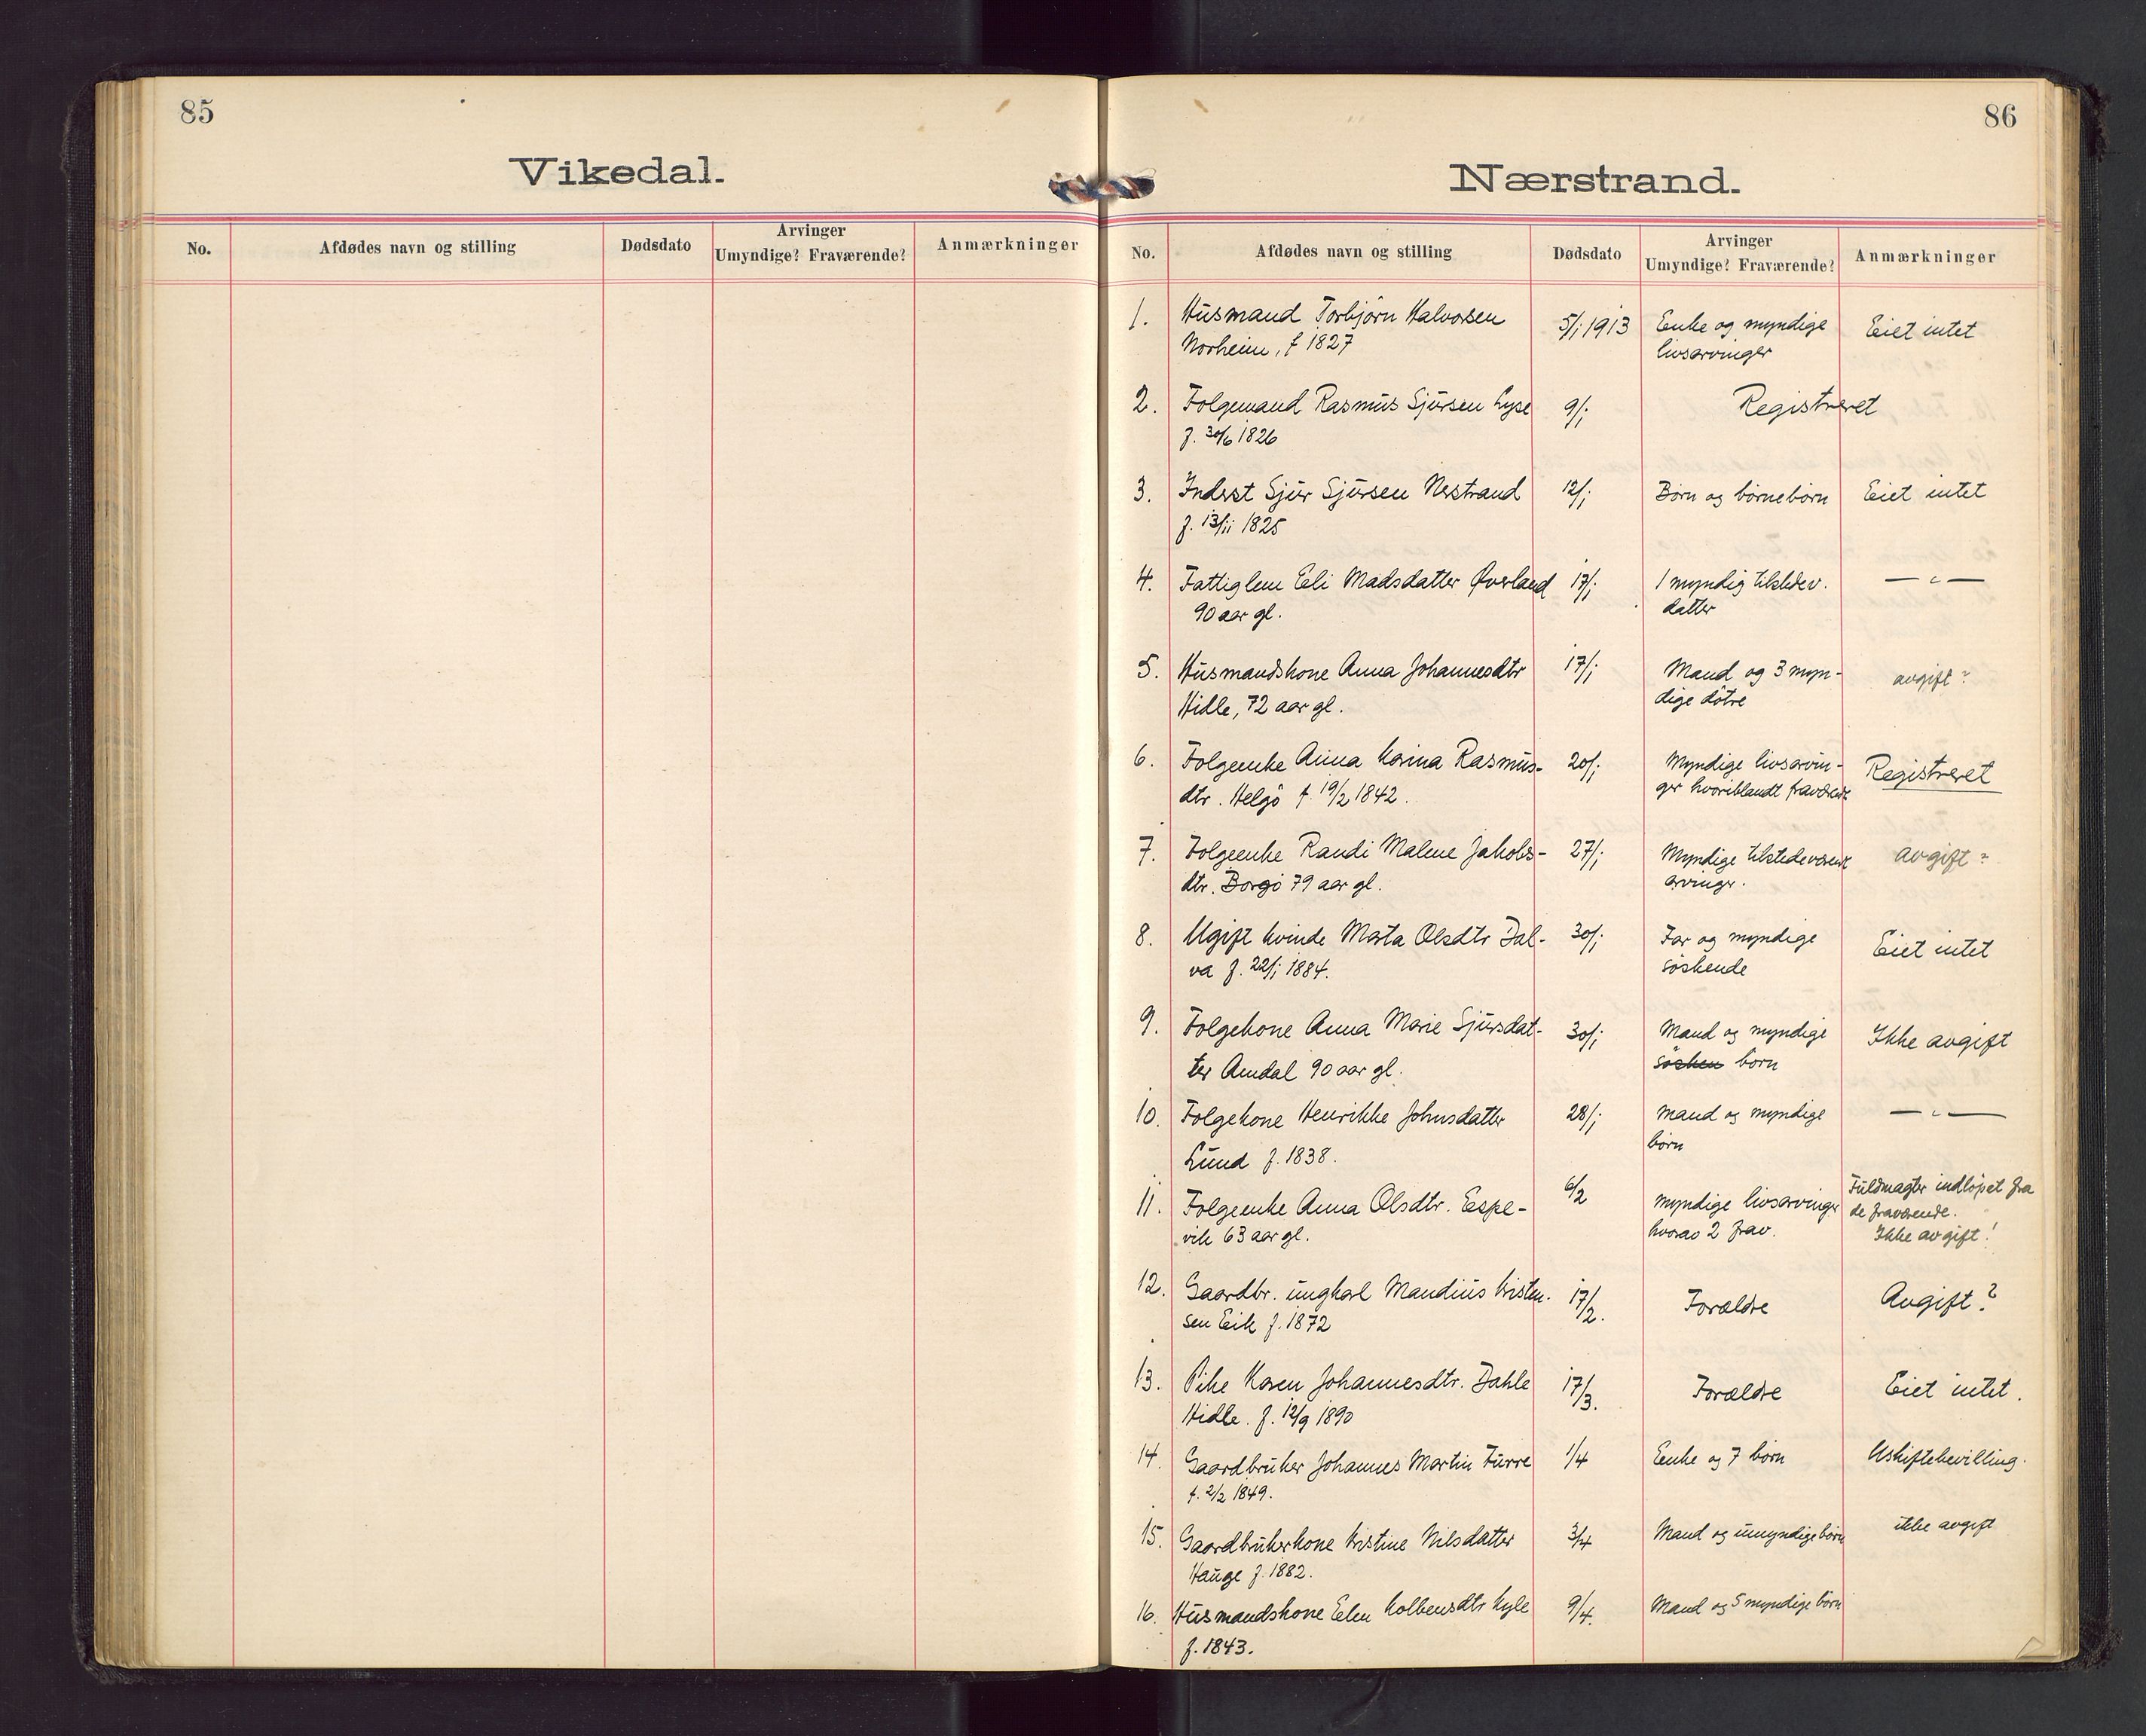 85
Vikedal.
No. Afdødes navn og stilling Dødsdato Arvinger Umyndige? Fraværende? Anmærkninger
86
Nærstrand.
No. Afdødes navn og stilling Dødsdato Arvinger Umyndige? Fraværende? Anmærkninger
1. Husmand Torbjørn Halvorsen 5/1 1913 Enke og myndige Eiet intet
Norheim, f 1827 livsarvinger
2. Folgemand Rasmus Sjursen Lyse 9/1 Registreret
f. 30/6 1826
3. Inderst Sjur Sjursen Nerstrand 12/1 Børn og børnebørn Eiet intet
f. 13/11 1825
4. Fattiglem Eli Madsdatter Øverland 17/1 1 myndig tilstedev. — " —
90 aar gl. datter
5. Husmandskone Anna Johannesdtr 17/1 Mand og 3 myn- avgift?
Hidle, 72 aar gl. dige døtre
6. Folgeenke Anna Karina Rasmus- 20/1 Myndige livsarvin- Registreret
dtr. Helgø f. 19/2 1842. ger hvoriblandt fraværende
7. Folgeenke Randi Malene Jakobs- 27/1 Myndige tilstedeværende avgift?
dtr. Borgø 79 aar gl. arvinger.
8. Ugift kvinde Marta Olsdtr Dal- 30/1 Far og myndige Eiet intet
va f. 22/1 1884. søskende
9. Folgekone Anna Marie Sjursdat- 30/1 Mand og myndige Ikke avgift
ter Amdal 90 aar gl. søsken børn
10. Folgekone Henrikke Johnsdatter 28/1 Mand og myndige — " —
Lund f. 1838. børn
11. Folgeenke Anna Olsdtr. Espe- 6/2 myndige livsarvinger Fuldmagter indløpet fra
vik 63 aar gl. hvorav 2 frav. de fraværende.
Ikke avgift!
12. Gaardbr. ungkarl Mandius Kristen- 17/2. Forældre Avgift?
sen Eik f. 1872
13. Pike Karen Johannesdtr. Dahle 17/3. Forældre Eiet intet.
Hidle. f. 12/9 1890
14. Gaardbruker Johannes Martin Furre 1/4 Enke og 7 børn Uskiftebevilling.
f. 2/2 1849.
15. Gaardbrukerkone Kristine Nilsdatter 3/4 Mand og umyndige børn ikke avgift
Hauge f. 1882.
16. Husmandskone Elen Kolbensdtr Kyle 9/4. Mand og 5 myndige børn
f. 1843.